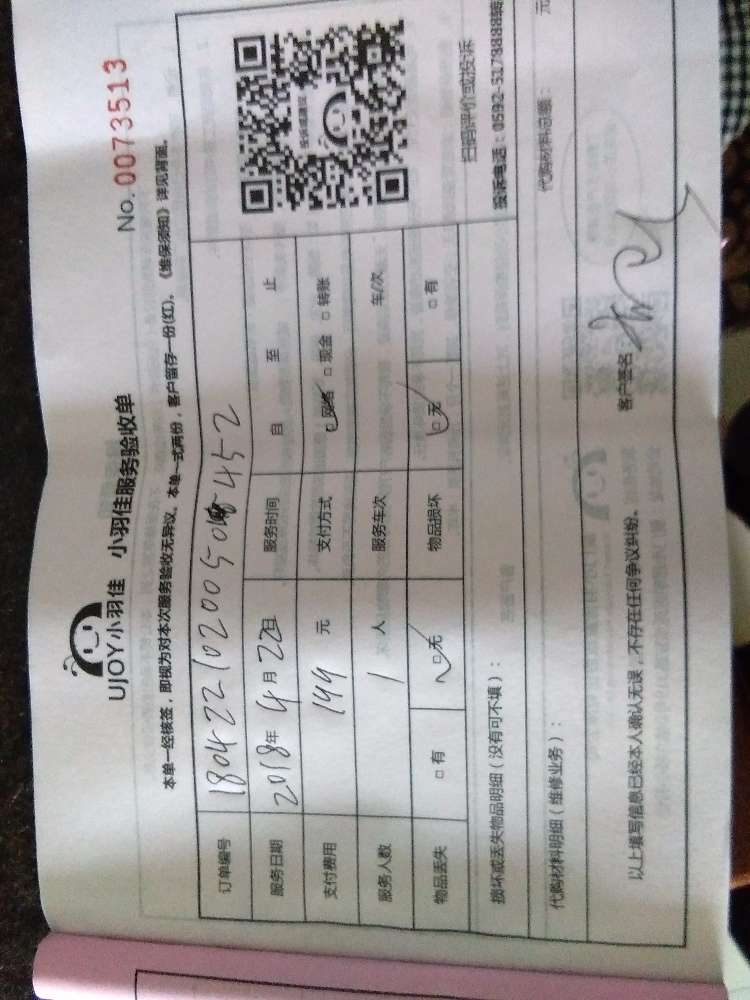 UJOY小羽佳 小羽佳服务验收单
No. 0073513
本单一经核签，即视为对本次服务验收无异议。本单一式两份，客户留存一份(红)。《维保须知》详见背面。
订单编号 1804221020050 452
服务日期 2018年4月22日 服务时间 自 至 止
支付费用 149 元 支付方式 □网络 □现金 □转账
服务人数 1 人 服务车次 车/次
物品丢失 □有 □无 物品损坏 □无 □有
扫码评价或投诉
投诉电话：0592-5178888转
损坏或丢失物品明细（没有可不填）：
代购材料明细（维修业务）： 代购材料总额： 元
以上填写信息已经本人确认无误，不存在任何争议纠纷。 客户签名